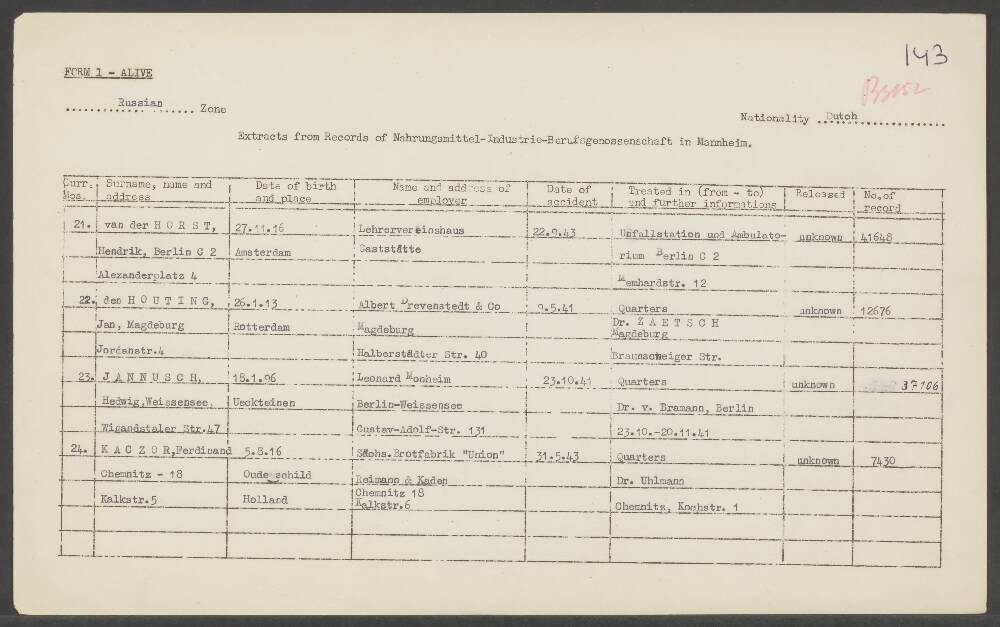 143
FORM 1 - ALIVE
B3152
Russian Zone
Nationality Dutch
Extracts from Records of Nahrungsmittel-Industrie-Berufsgenossenschaft in Mannheim.
Curr. Nos. | Surname, name and address | Date of birth and place | Name and address of employer | Date of accident | Treated in (from - to) and further informations | Released | No. of record
21. van der H O R S T, 27.11.16 Lehrervereinshaus 22.9.43 Unfallstation und Ambulato- unknown 41648
Hendrik, Berlin C 2 Amsterdam Gaststätte rium Berlin C 2
Alexanderplatz 4 Memhardstr. 12
22. den H O U T I N G, 26.1.13 Albert Drevenstedt & Co 9.5.41 Quarters unknown 12676
Jan, Magdeburg Rotterdam Magdeburg Dr. Z A E T S C H Magdeburg
Jordanstr.4 Halberstädter Str. 40 Braunschweiger Str.
23. J A N N U S C H, 18.1.96 Leonard Monheim 23.10.41 Quarters unknown 37106
Hedwig,Weissensee, Ueckteinen Berlin-Weissensee Dr. v. Bramann, Berlin
Wigandstaler Str.47 Gustav-Adolf-Str. 131 23.10.-20.11.41
24. K A C Z O R,Ferdinand 5.8.16 Sächs.Brotfabrik "Union" 31.5.43 Quarters unknown 7430
Chemnitz - 18 Oudeschild Reimann & Kaden Dr. Uhlmann
Kalkstr.5 Holland Chemnitz 18 Kalkstr.6 Chemnitz, Kochstr. 1